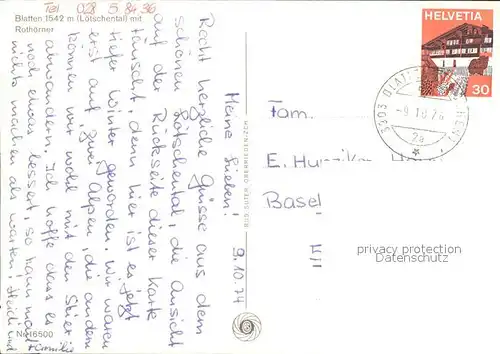 Tel 028 5 84 36
Blatten 1542 m (Lötschental) mit
Rothörner
9.10.74
Meine Lieben!
Recht herzliche Grüsse aus dem
schönen Lötschental, die Ansicht
auf der Rückseite dieser Karte
täuscht, denn hier ist es jetzt
tiefer Winter geworden. Wir waren
erst auf zwei Alpen, die andern
können wir wohl mit den Skier
abwandern. Ich hoffe dass es
noch etwas bessert, so kann man
nichts machen als warten! Heidi und
Familie
Nr. 16500
RUD. SUTER, OBERRIEDEN-ZCH.
HELVETIA
30
3903 BLATTEN
-9.10.74
2a
Fam.
E.
Basel
privacy protection
Datenschutz